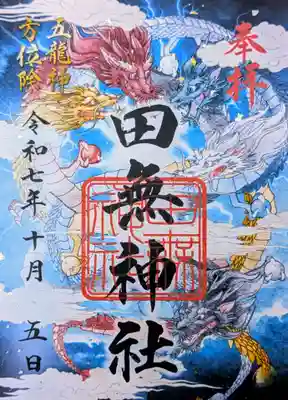 奉拝
田無神社
五龍神
方位除
令和七年十月五日